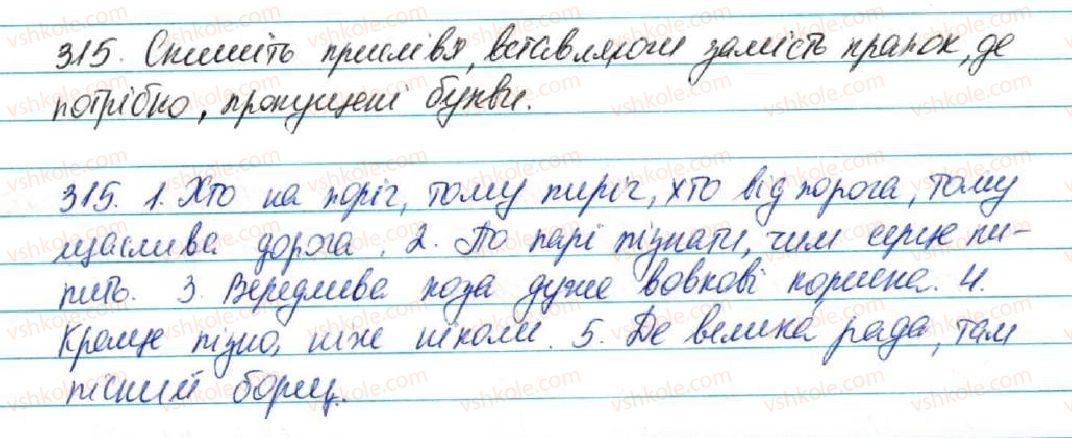 315. Спишіть прислів'я, вставляючи замість крапок, де
потрібно, пропущені букви.
315. 1. Хто на поріг, тому пиріг, хто від порога, тому
щаслива дорога. 2. По парі пізнати, чим серце ки-
пить. 3. Вередлива коза дуже вовкові корисна. 4.
Краще пізно, ніж ніколи. 5. Де велика рада, там
пісний борщ.